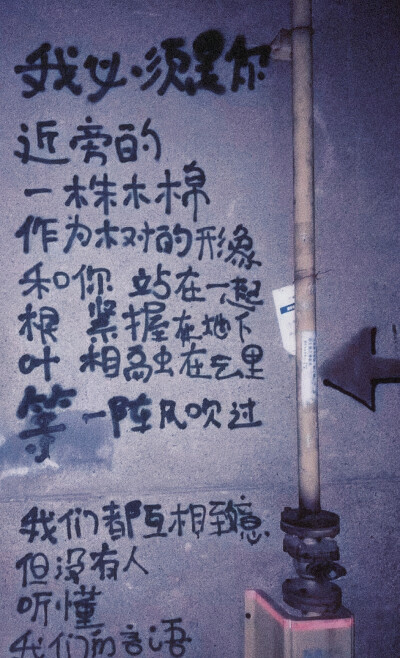 我必须是你
近旁的
一株木棉
作为树的形象
和你 站在一起
根 紧握在地下
叶 相触在云里
等一阵风吹过
我们都互相致意
但没有人
听懂
我们的言语